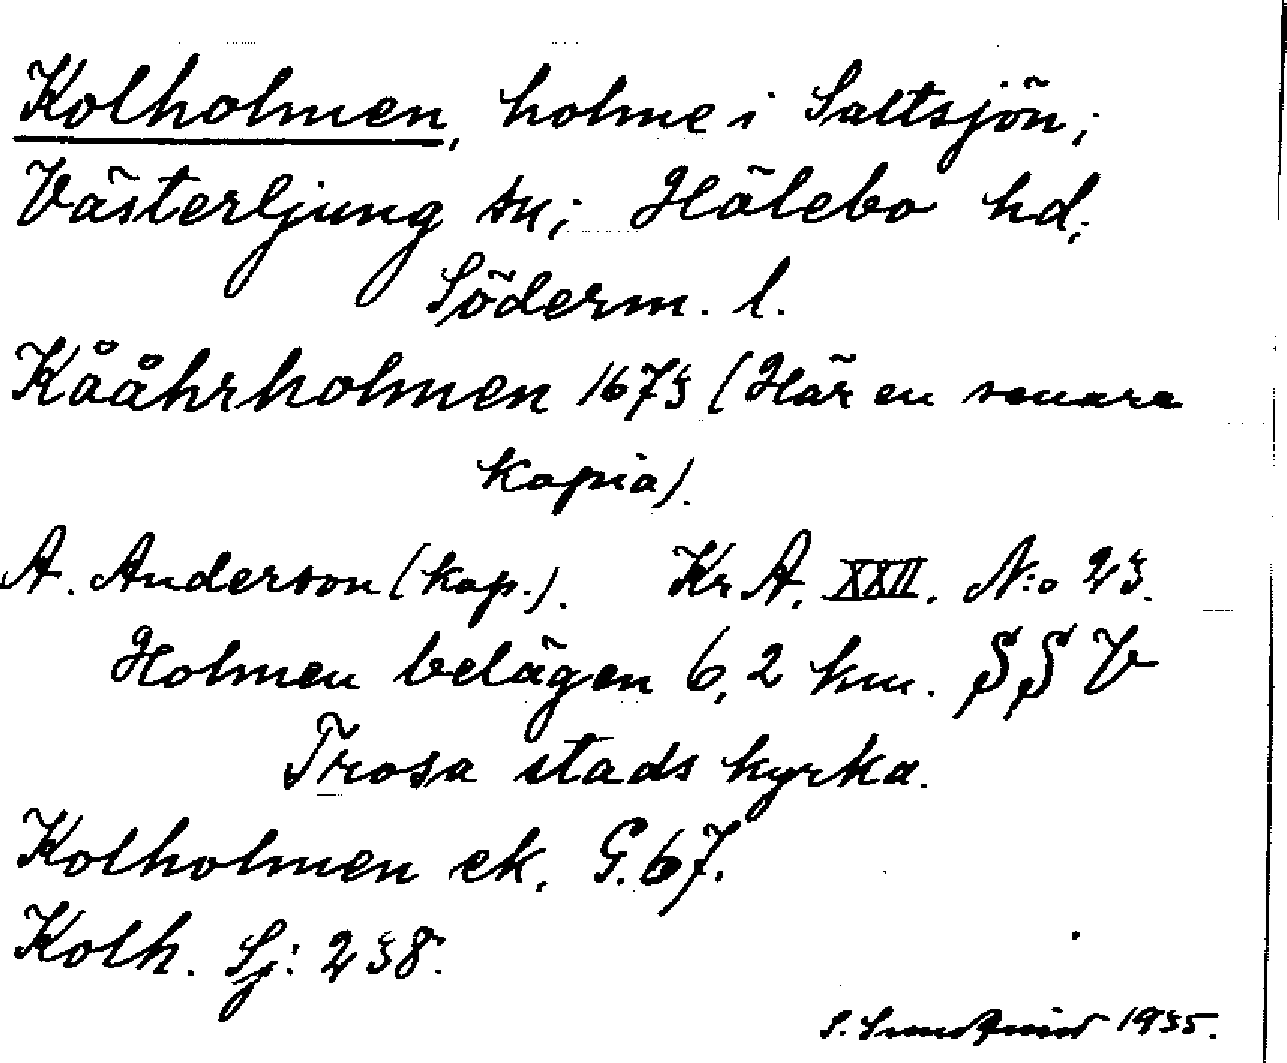 Kolholmen, holme i Saltsjön;
Västerljung sn; Hölebo hd;
Söderm. l.
Kååhrholmen 1673 (Här en senare
kopia).
A. Anderson (kop.). Kr A. XXII. N:o 23.
Holmen belägen 6,2 km. SSV
Trosa stads kyrka.
Kolholmen ek. G. 67.
Kolh. Sj: 238.
S. 1935.